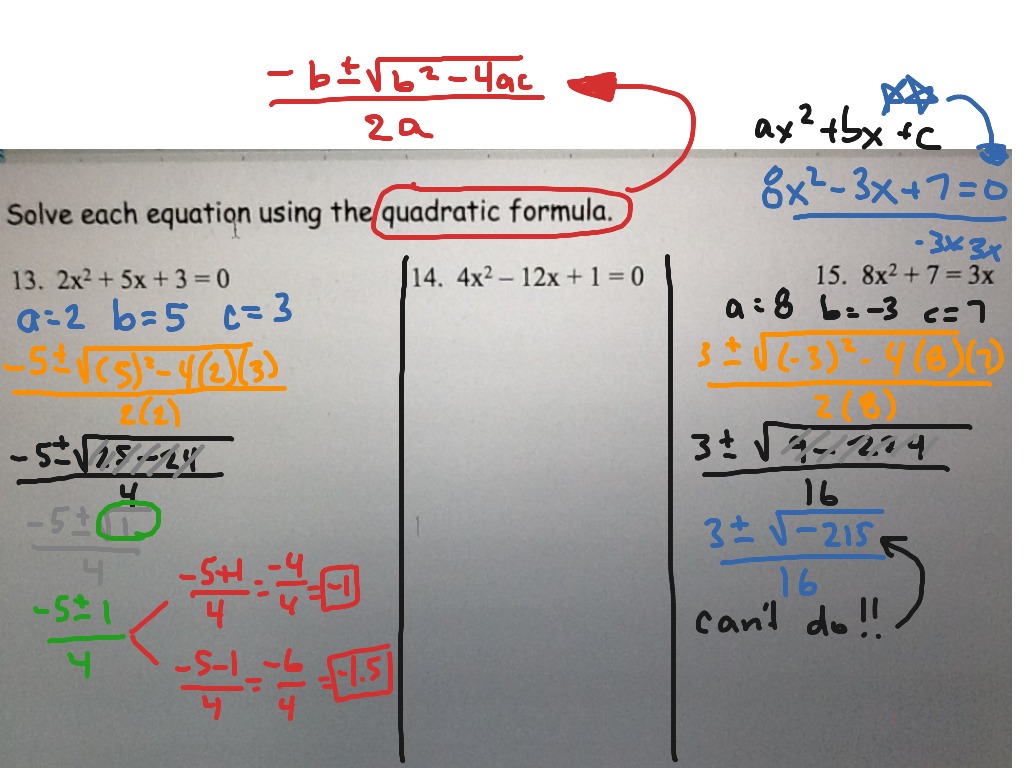 -b ± √b² - 4ac
2a
ax² + bx + c
8x² - 3x + 7 = 0
-3x 3x
Solve each equation using the quadratic formula.
13. 2x² + 5x + 3 = 0
a=2 b=5 c=3
-5 ± √(5)² - 4(2)(3)
2(2)
-5 ± √25 - 24
4
-5 ± √1
4
-5 ± 1
4
-5+1 = -4 = -1
4 4
-5-1 = -6 = -1.5
4 4
14. 4x² – 12x + 1 = 0
15. 8x² + 7 = 3x
a=8 b=-3 c=7
3 ± √(-3)² - 4(8)(7)
2(8)
3 ± √9 - 224
16
3 ± √-215
16
can't do!!